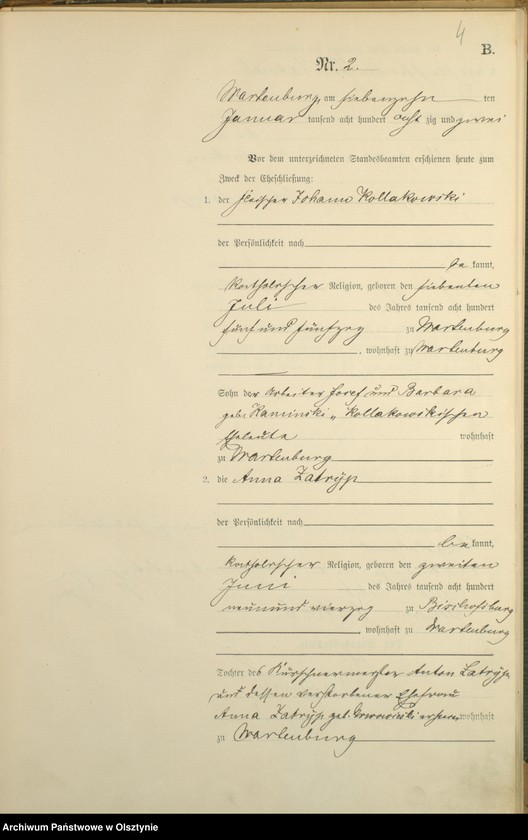 4
B.
Nr. 2.
Wartenburg, am siebenzehn ten
Januar tausend acht hundert achtzig und zwei
Vor dem unterzeichneten Standesbeamten erschienen heute zum
Zweck der Eheschließung:
1. der Fleischer Johann Kollakowski
der Persönlichkeit nach
be kannt,
katholischer Religion, geboren den siebenten
Juli des Jahres tausend acht hundert
fünf und fünfzig zu Wartenburg
, wohnhaft zu Wartenburg
Sohn der Arbeiter Josef und Barbara
geb. Kaminski, Kollakowskischen
Eheleute wohnhaft
zu Wartenburg
2. die Anna Zatryp
der Persönlichkeit nach
be kannt,
katholischer Religion, geboren den zweiten
Juni des Jahres tausend acht hundert
neunund vierzig zu Bischofsburg
, wohnhaft zu Wartenburg
Tochter des Kürschnermeister Anton Zatryp
und dessen verstorbener Ehefrau
Anna Zatryp geb. wohnhaft
zu Wartenburg
Archiwum Państwowe w Olsztynie